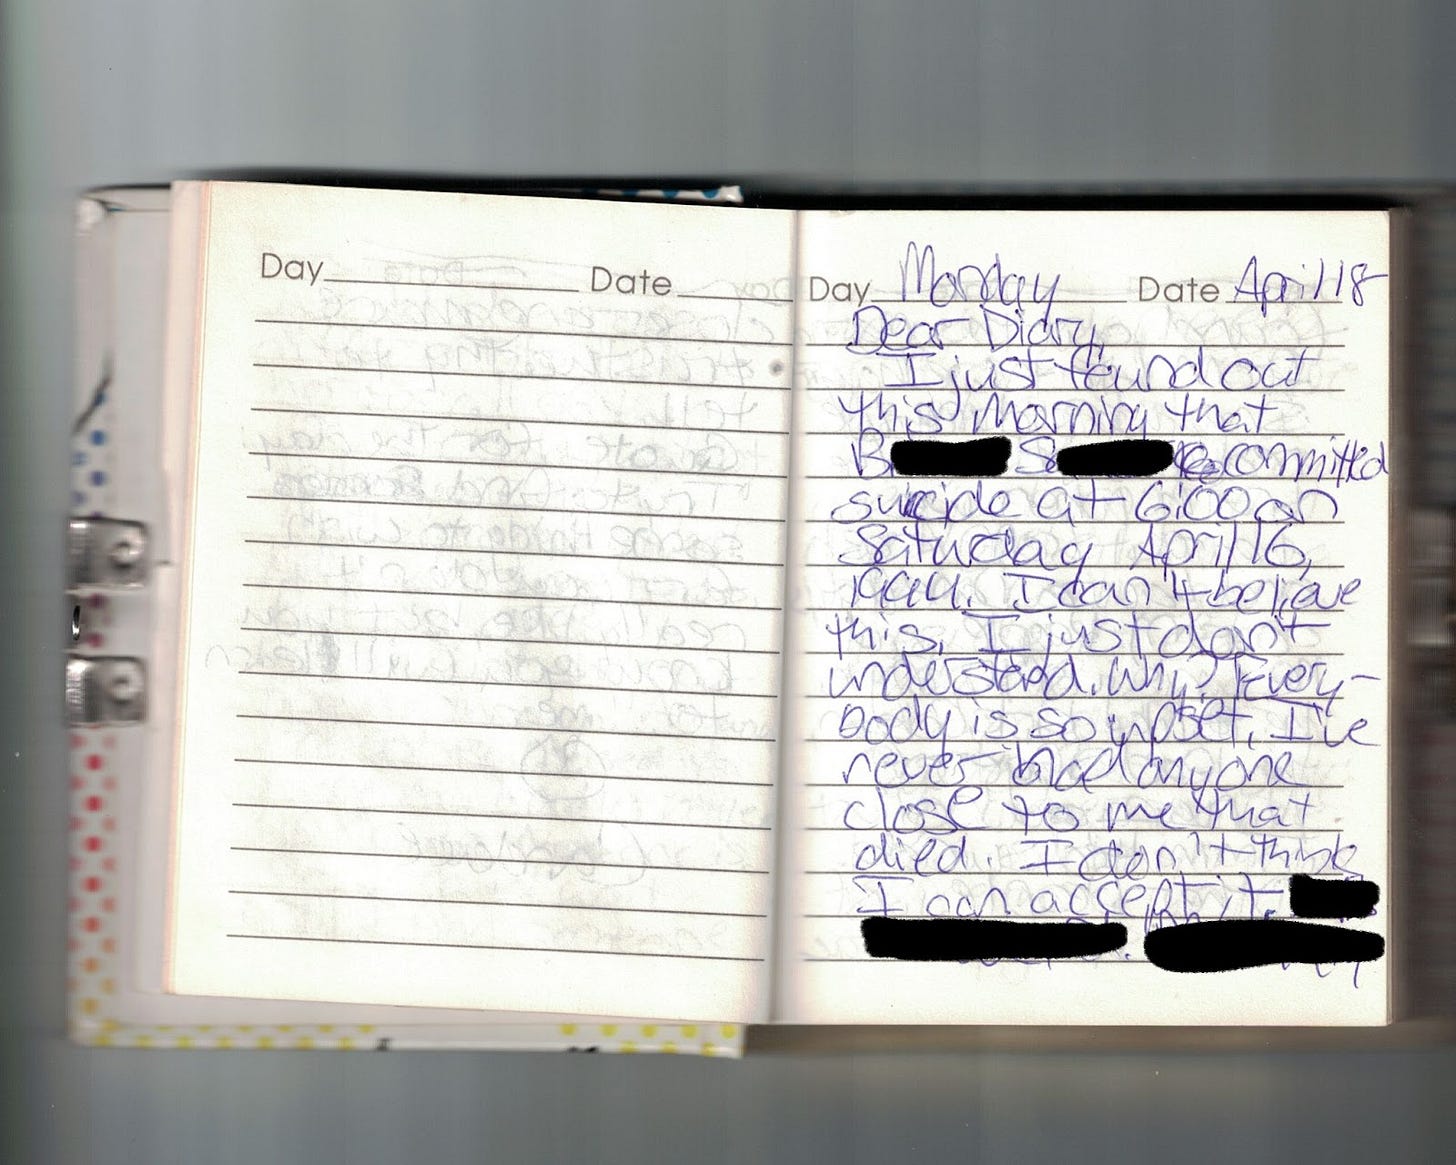 Day Date
Day Monday Date April 18
Dear Diary,
I just found out
this morning that
B S committed
suicide at 6:00 on
Saturday April 16,
1994. I can't believe
this. I just don't
understand. Why? Every-
body is so upset. I've
never had anyone
close to me that
died. I don't think
I can accept it.